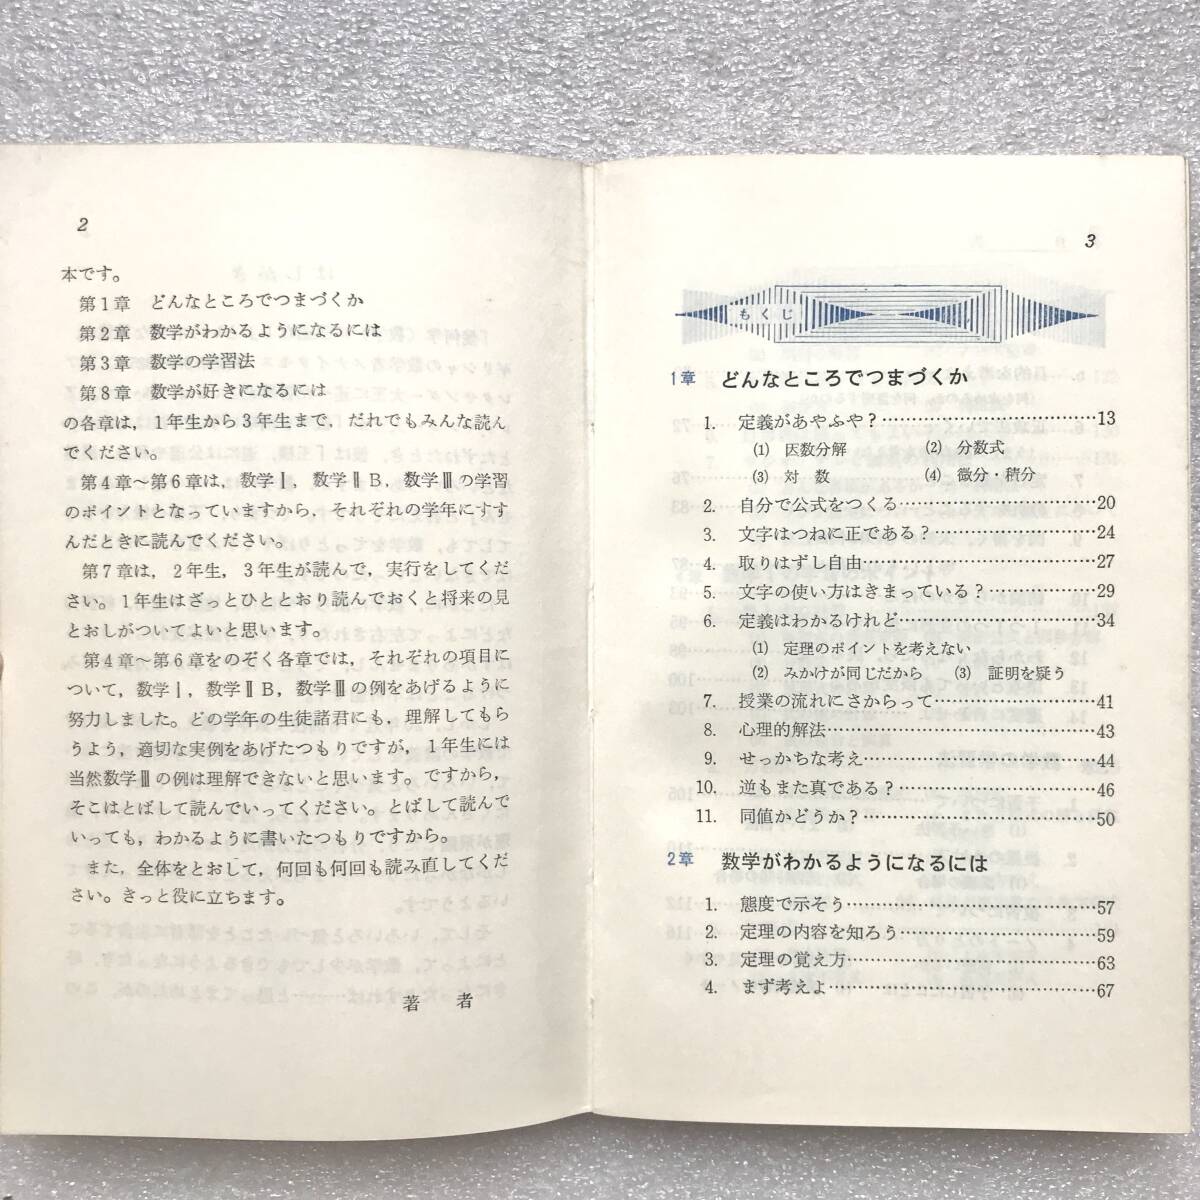 2
本です。
第1章 どんなところでつまづくか
第2章 数学がわかるようになるには
第3章 数学の学習法
第8章 数学が好きになるには
の各章は，1年生から3年生まで，だれでもみんな読ん
でください。
第4章～第6章は，数学Ⅰ，数学ⅡB，数学Ⅲの学習
のポイントとなっていますから，それぞれの学年にすす
んだときに読んでください。
第7章は，2年生，3年生が読んで，実行をしてくだ
さい。1年生はざっとひととおり読んでおくと将来の見
とおしがついてよいと思います。
第4章～第6章をのぞく各章では，それぞれの項目に
ついて，数学Ⅰ，数学ⅡB，数学Ⅲの例をあげるように
努力しました。どの学年の生徒諸君にも，理解してもら
うよう，適切な実例をあげたつもりですが，1年生には
当然数学Ⅲの例は理解できないと思います。ですから，
そこはとばして読んでいってください。とばして読んで
いっても，わかるように書いたつもりですから。
また，全体をとおして，何回も何回も読み直してくだ
さい。きっと役に立ちます。
著 者
3
もくじ
1章 どんなところでつまづくか
1. 定義があやふや？……………………………13
(1) 因数分解 (2) 分数式
(3) 対 数 (4) 微分・積分
2. 自分で公式をつくる……………………………20
3. 文字はつねに正である？……………………………24
4. 取りはずし自由……………………………27
5. 文字の使い方はきまっている？……………………………29
6. 定義はわかるけれど……………………………34
(1) 定理のポイントを考えない
(2) みかけが同じだから (3) 証明を疑う
7. 授業の流れにさからって……………………………41
8. 心理的解法……………………………43
9. せっかちな考え……………………………44
10. 逆もまた真である？……………………………46
11. 同値かどうか？……………………………50
2章 数学がわかるようになるには
1. 態度で示そう……………………………57
2. 定理の内容を知ろう……………………………59
3. 定理の覚え方……………………………63
4. まず考えよ……………………………67